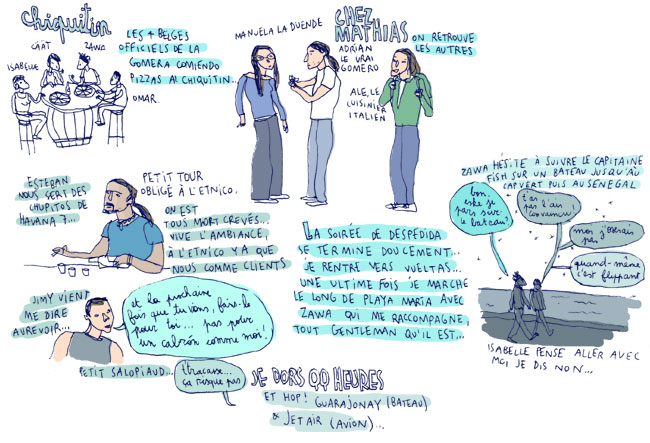 Chiquitin
CHAT
ZAWA
ISABELLE
OMAR.
LES 4 BELGES
OFFICIELS DE LA
GOMERA COMIENDO
PIZZAS AL CHIQUITIN...
MANUELA LA DUENDE
CHEZ
MATHIAS
ADRIAN
LE VRAI
GOMERO
ON RETROUVE
LES AUTRES
ALE, LE
CUISINIER
ITALIEN
ESTEBAN
NOUS SERT DES
CHUPITOS DE
HAVANA 7...
PETIT TOUR
OBLIGÉ À L'ETNICO.
ON EST
TOUS MORT CREVÉS...
VIVE L'AMBIANCE,
À L'ETNICO Y A QUE
NOUS COMME CLIENTS
LA SOIRÉE DE DESPEDIDA
SE TERMINE DOUCEMENT...
JE RENTRE VERS VUELTAS...
UNE ULTIME FOIS JE MARCHE
LE LONG DE PLAYA MARIA AVEC
ZAWA QUI ME RACCOMPAGNE,
TOUT GENTLEMAN QU'IL EST...
ZAWA HÉSITE À SUIVRE LE CAPITAINE
FISH SUR UN BATEAU JUSQU'AU
CAPVERT PUIS AU SENEGAL
bon,
este je
pars sur
le bateau?
t'as
pas l'air
convaincu
moi j'oserais
pas
quand-même
c'est flippant
ISABELLE PENSE ALLER AVEC
MOI JE DIS NON...
JIMY VIENT
ME DIRE
AUREVOIR...
et la prochaine
fois que tu viens, fais-le
pour toi... pas pour
un cabrón comme moi!
PETIT SALOPIAUD...
t'tracasse...
ça risque pas
JE DORS 99 HEURES
ET HOP! GUARAJONAY (BATEAU)
& JETAIR (AVION)...